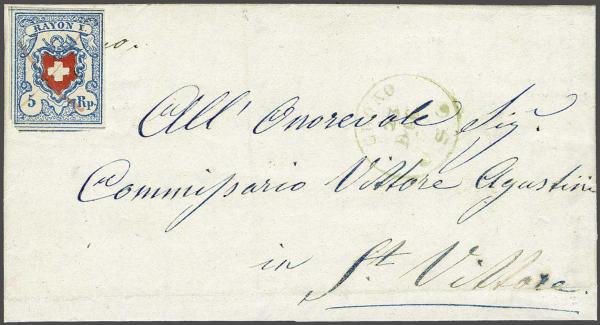 RAYON I.
5 Rp.
All' Onorevole Sig.r
Commissario Vittore Agustini
in
St. Vittore